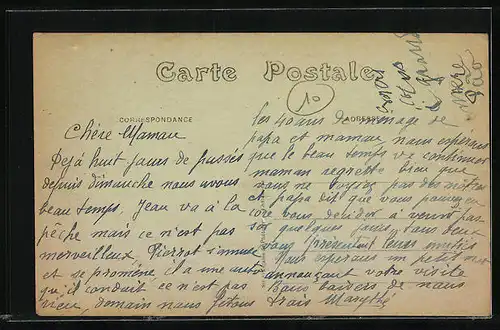 Carte Postale
10
CORRESPONDANCE
Chère Maman
Déjà huit jours de passés
depuis dimanche nous avons
beau temps, Jean va à la
pêche mais ce n'est pas
merveilleux, Pierrot s'amuse
et se promène il a une auto
qu'il conduit ce n'est pas
rien, demain nous fêtons
les 40 ans de ménage de
papa et maman nous espérons
que le beau temps va continuer
maman regrette bien que
vous ne soyez pas des nôtres
et papa dit que vous pouvez en
core vous décider à venir pas
ser quelques jours, tous deux
vous présentent leurs amitiés
Nous espérons un petit mot
annonçant votre visite
Bons baisers de nous
trois